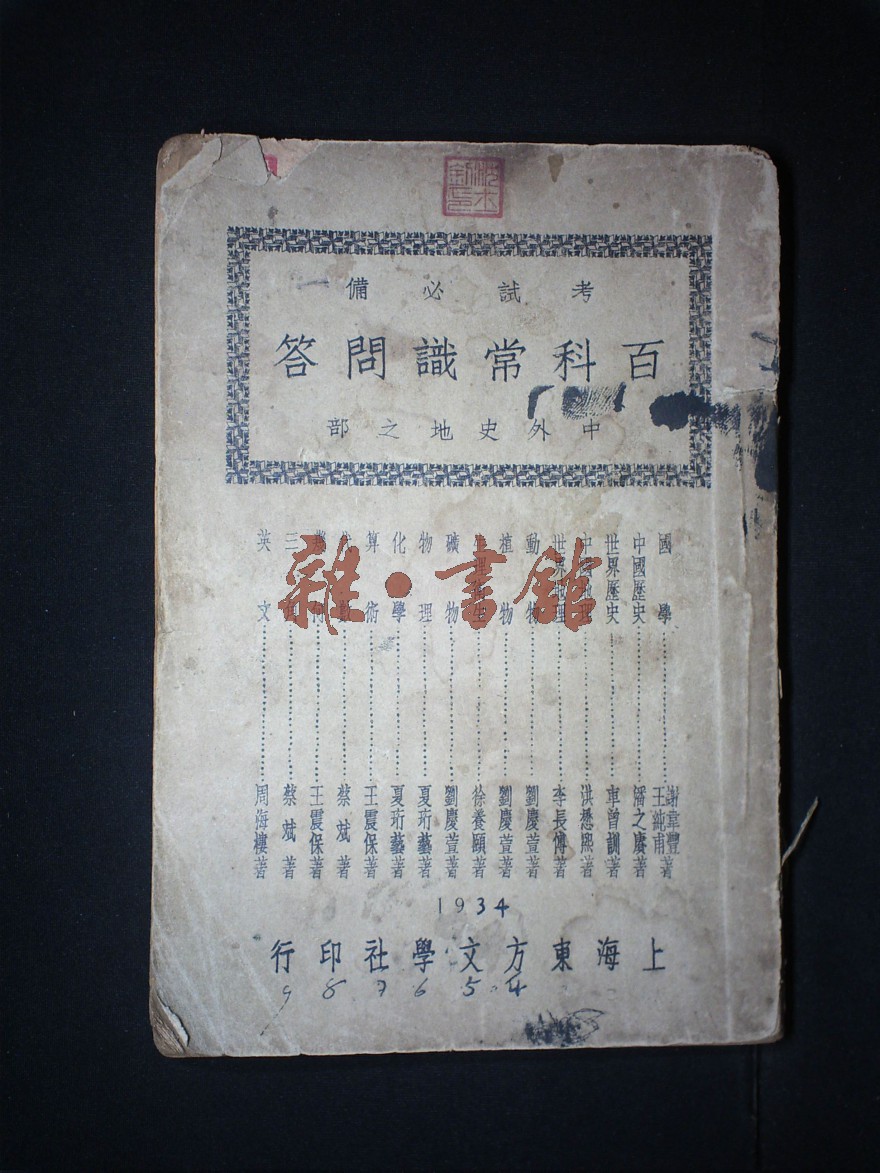 考試必備
百科常識問答
中外史地之部
國學 謝葦豐 王純甫 著
中國歷史 潘之賡著
世界歷史 車曾訓著
中國地理 洪懋熙著
世界地理 李長傅著
動物 劉慶萱著
植物 劉慶萱著
生理衛生 徐養頤著
礦物 劉慶萱著
物理 夏珩藝著
化學 夏珩藝著
算術 王震保著
代數 蔡斌著
幾何 王震保著
三角 蔡斌著
英文 周海樓著
1934
上海東方文學社印行
4 5 6 7 8 9
雜·書館